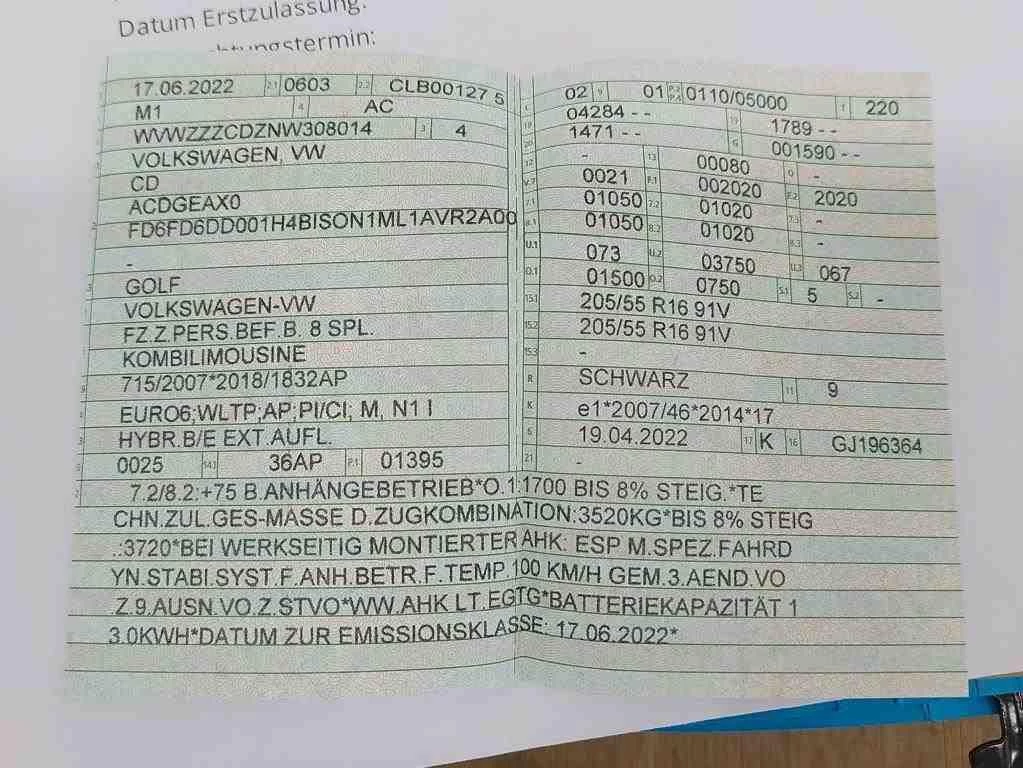 Datum Erstzulassung:
17.06.2022 2.1 0603 2.2 CLB00127 5
M1 4 AC
WVWZZZCDZNW308014 3 4
VOLKSWAGEN, VW
CD
ACDGEAX0
FD6FD6DD001H4BISON1ML1AVR2A00
-
GOLF
VOLKSWAGEN-VW
FZ.Z.PERS.BEF.B. 8 SPL.
KOMBILIMOUSINE
715/2007*2018/1832AP
EURO6;WLTP;AP;PI/CI; M, N1 I
HYBR.B/E EXT.AUFL.
0025 14.1 36AP P.1 01395
L 02 9 01 P.2 P.4 0110/05000 T 220
18 04284 - - 19 1789 - -
20 1471 - - G 001590 - -
12 - 13 00080 Q -
V.7 0021 F.1 002020 F.2 2020
7.1 01050 7.2 01020 7.3 -
8.1 01050 8.2 01020 8.3 -
U.1 073 U.2 03750 U.3 067
O.1 01500 O.2 0750 S.1 5 S.2 -
15.1 205/55 R16 91V
15.2 205/55 R16 91V
15.3 -
R SCHWARZ 11 9
K e1*2007/46*2014*17
6 19.04.2022 17 K 16 GJ196364
21 -
7.2/8.2:+75 B.ANHÄNGEBETRIEB*O.1:1700 BIS 8% STEIG.*TE
CHN.ZUL.GES-MASSE D.ZUGKOMBINATION:3520KG*BIS 8% STEIG
.:3720*BEI WERKSEITIG MONTIERTER AHK: ESP M.SPEZ.FAHRD
YN.STABI.SYST.F.ANH.BETR.F.TEMP.100 KM/H GEM.3.AEND.VO
.Z.9.AUSN.VO.Z.STVO*WW.AHK LT.EGTG*BATTERIEKAPAZITÄT 1
3.0KWH*DATUM ZUR EMISSIONSKLASSE: 17.06.2022*